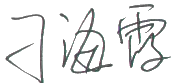 刁海霞